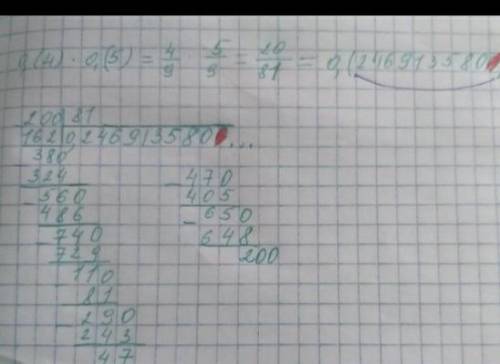 0,(4) · 0,(5) = 4/9 · 5/9 = 20/81 = 0,(246913580
200 81
162 0,246913580...
380
324
- 560
486
- 740
729
- 110
81
- 290
243
47
- 470
405
- 650
648
200